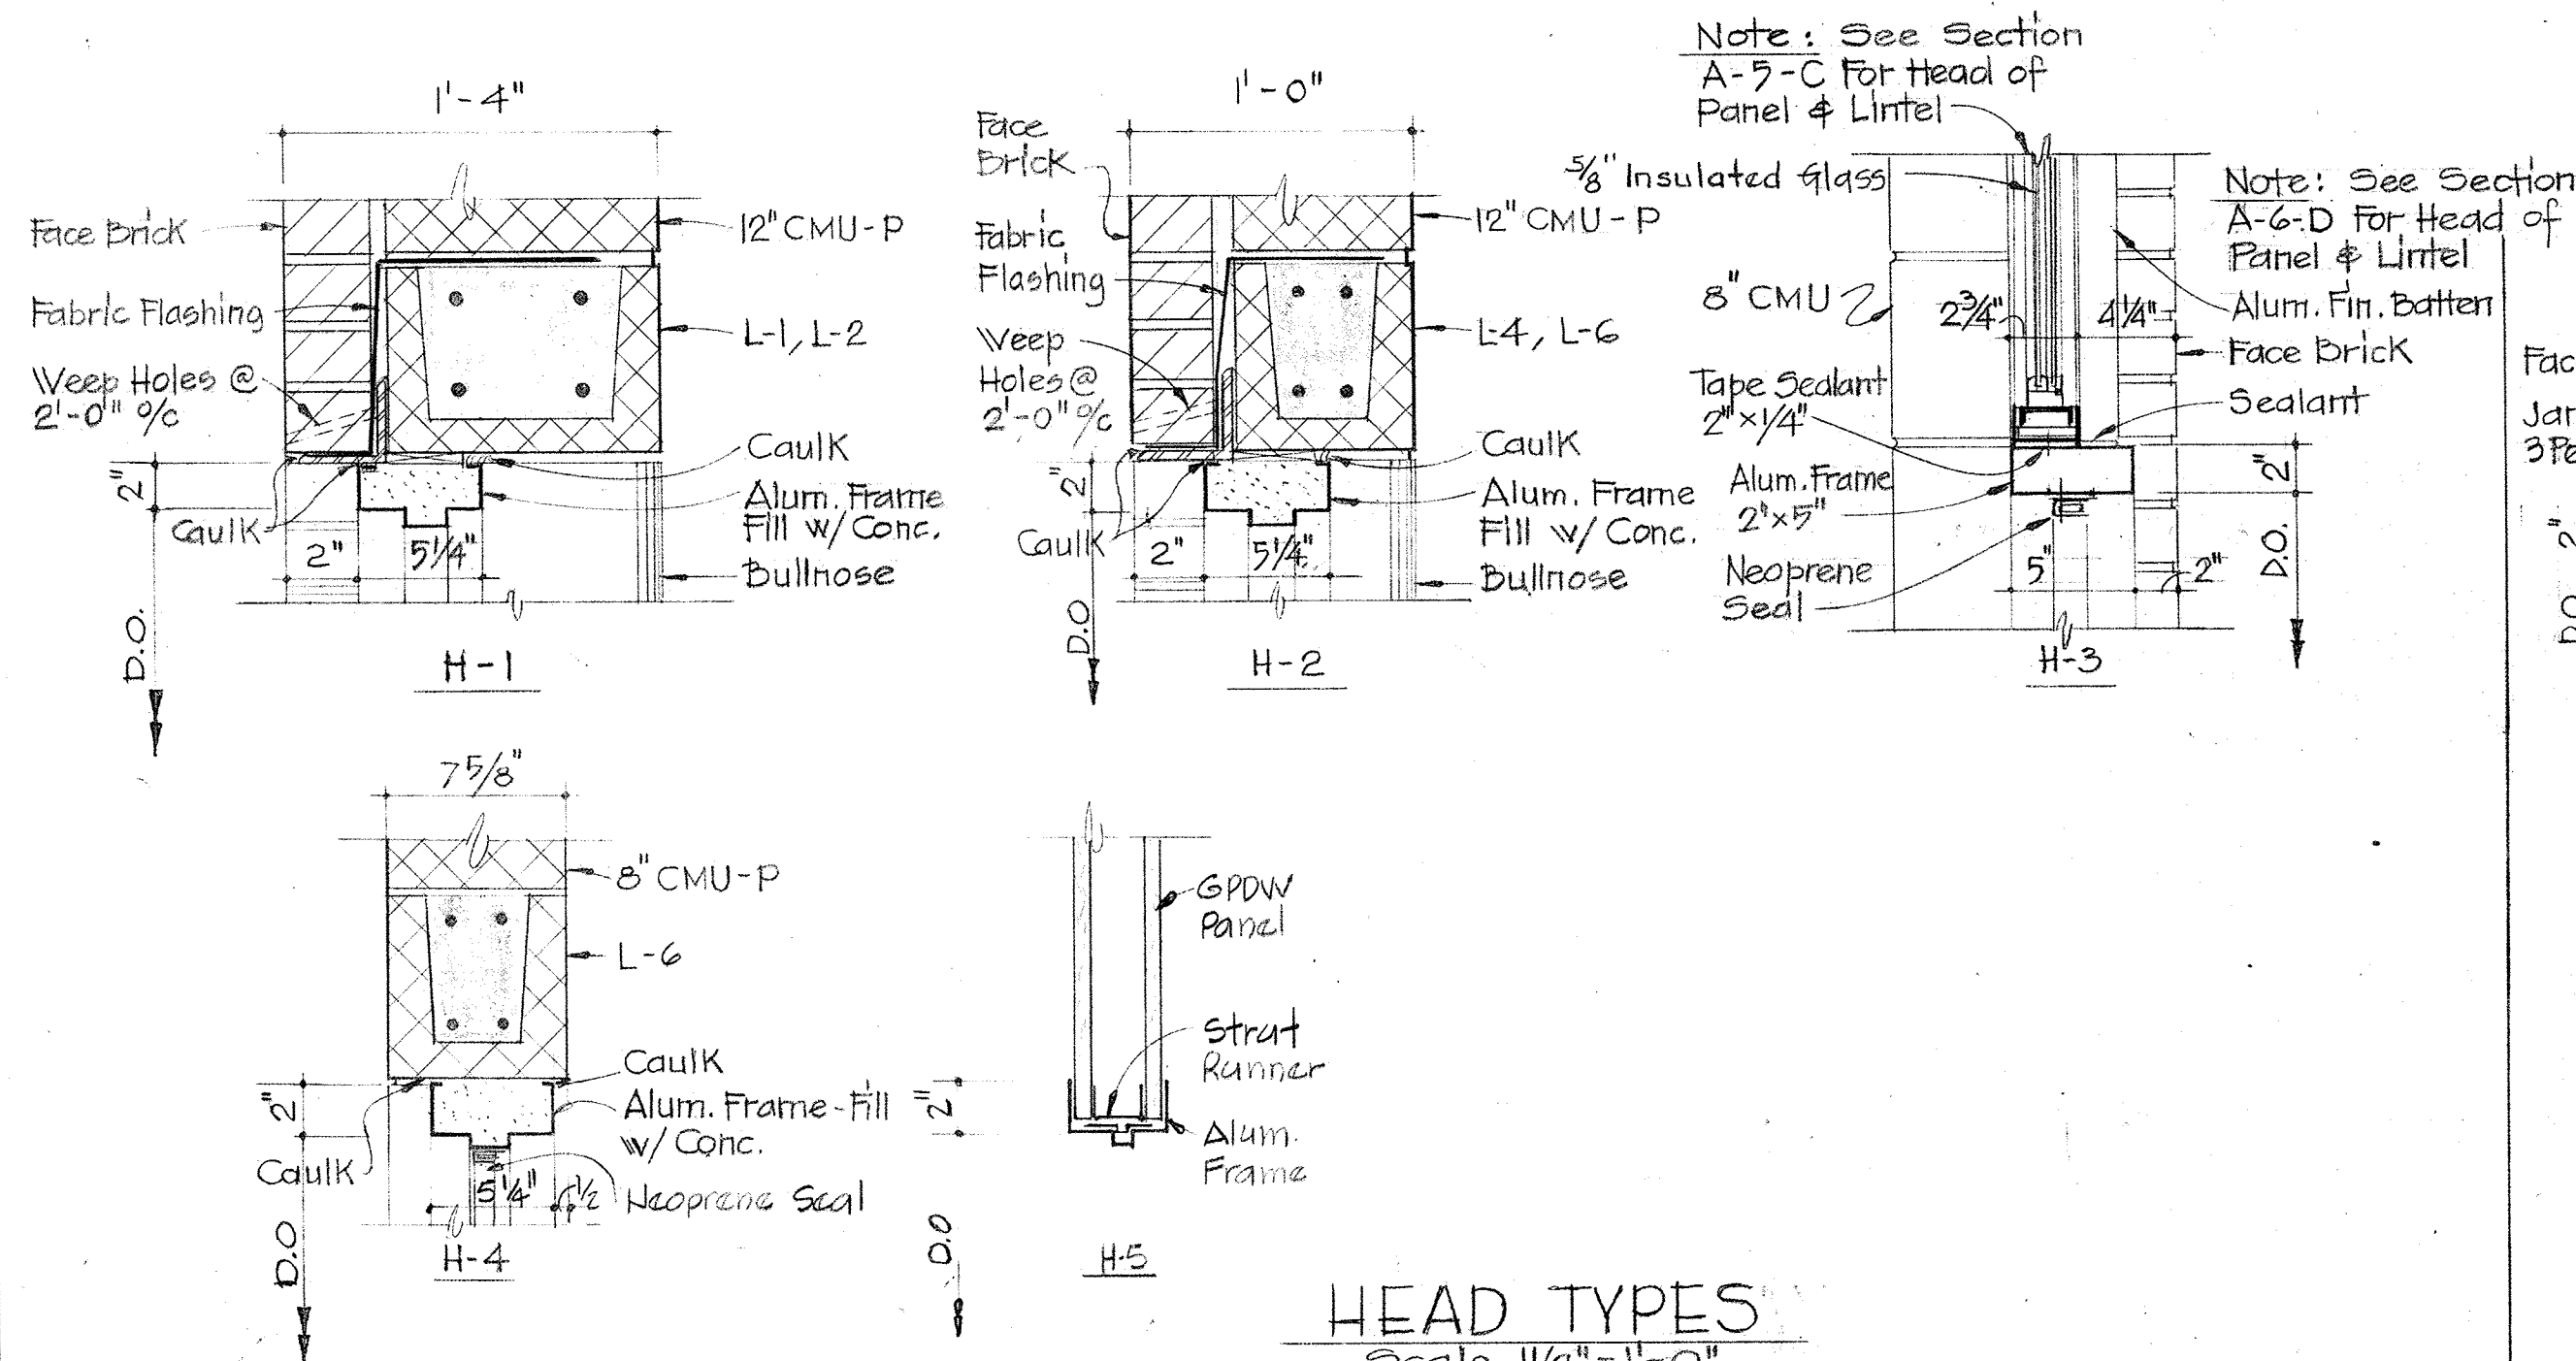 1'-4"
Face Brick
12" CMU-P
Fabric Flashing
L-1, L-2
Weep Holes @
2'-0" o/c
Caulk
2"
Alum. Frame
Fill w/ Conc.
Caulk
2"
5 1/4"
Bullnose
D.O.
H-1
1'-0"
Face
Brick
12" CMU-P
Fabric
Flashing
L-4, L-6
Weep
Holes @
2'-0" o/c
Caulk
2"
Alum. Frame
Fill w/ Conc.
Caulk
2"
5 1/4"
Bullnose
D.O
H-2
Note: See Section
A-5-C For Head of
Panel & Lintel
5/8" Insulated Glass
Note: See Section
A-6-D For Head of
Panel & Lintel
8" CMU
2 3/4"
4 1/4"
Alum. Fin. Batten
Face Brick
Tape Sealant
2" x 1/4"
Sealant
Alum. Frame
2" x 5"
2"
Neoprene
Seal
5"
2"
D.O.
H-3
Fac
Jar
2"
D.O
7 5/8"
8" CMU-P
L-6
Caulk
2"
Alum. Frame-Fill
w/ Conc.
Caulk
5 1/4"
1/2
Neoprene Seal
D.O
H-4
GPDW
Panel
Strut
Runner
2"
Alum.
Frame
D.O
H-5
HEAD TYPES